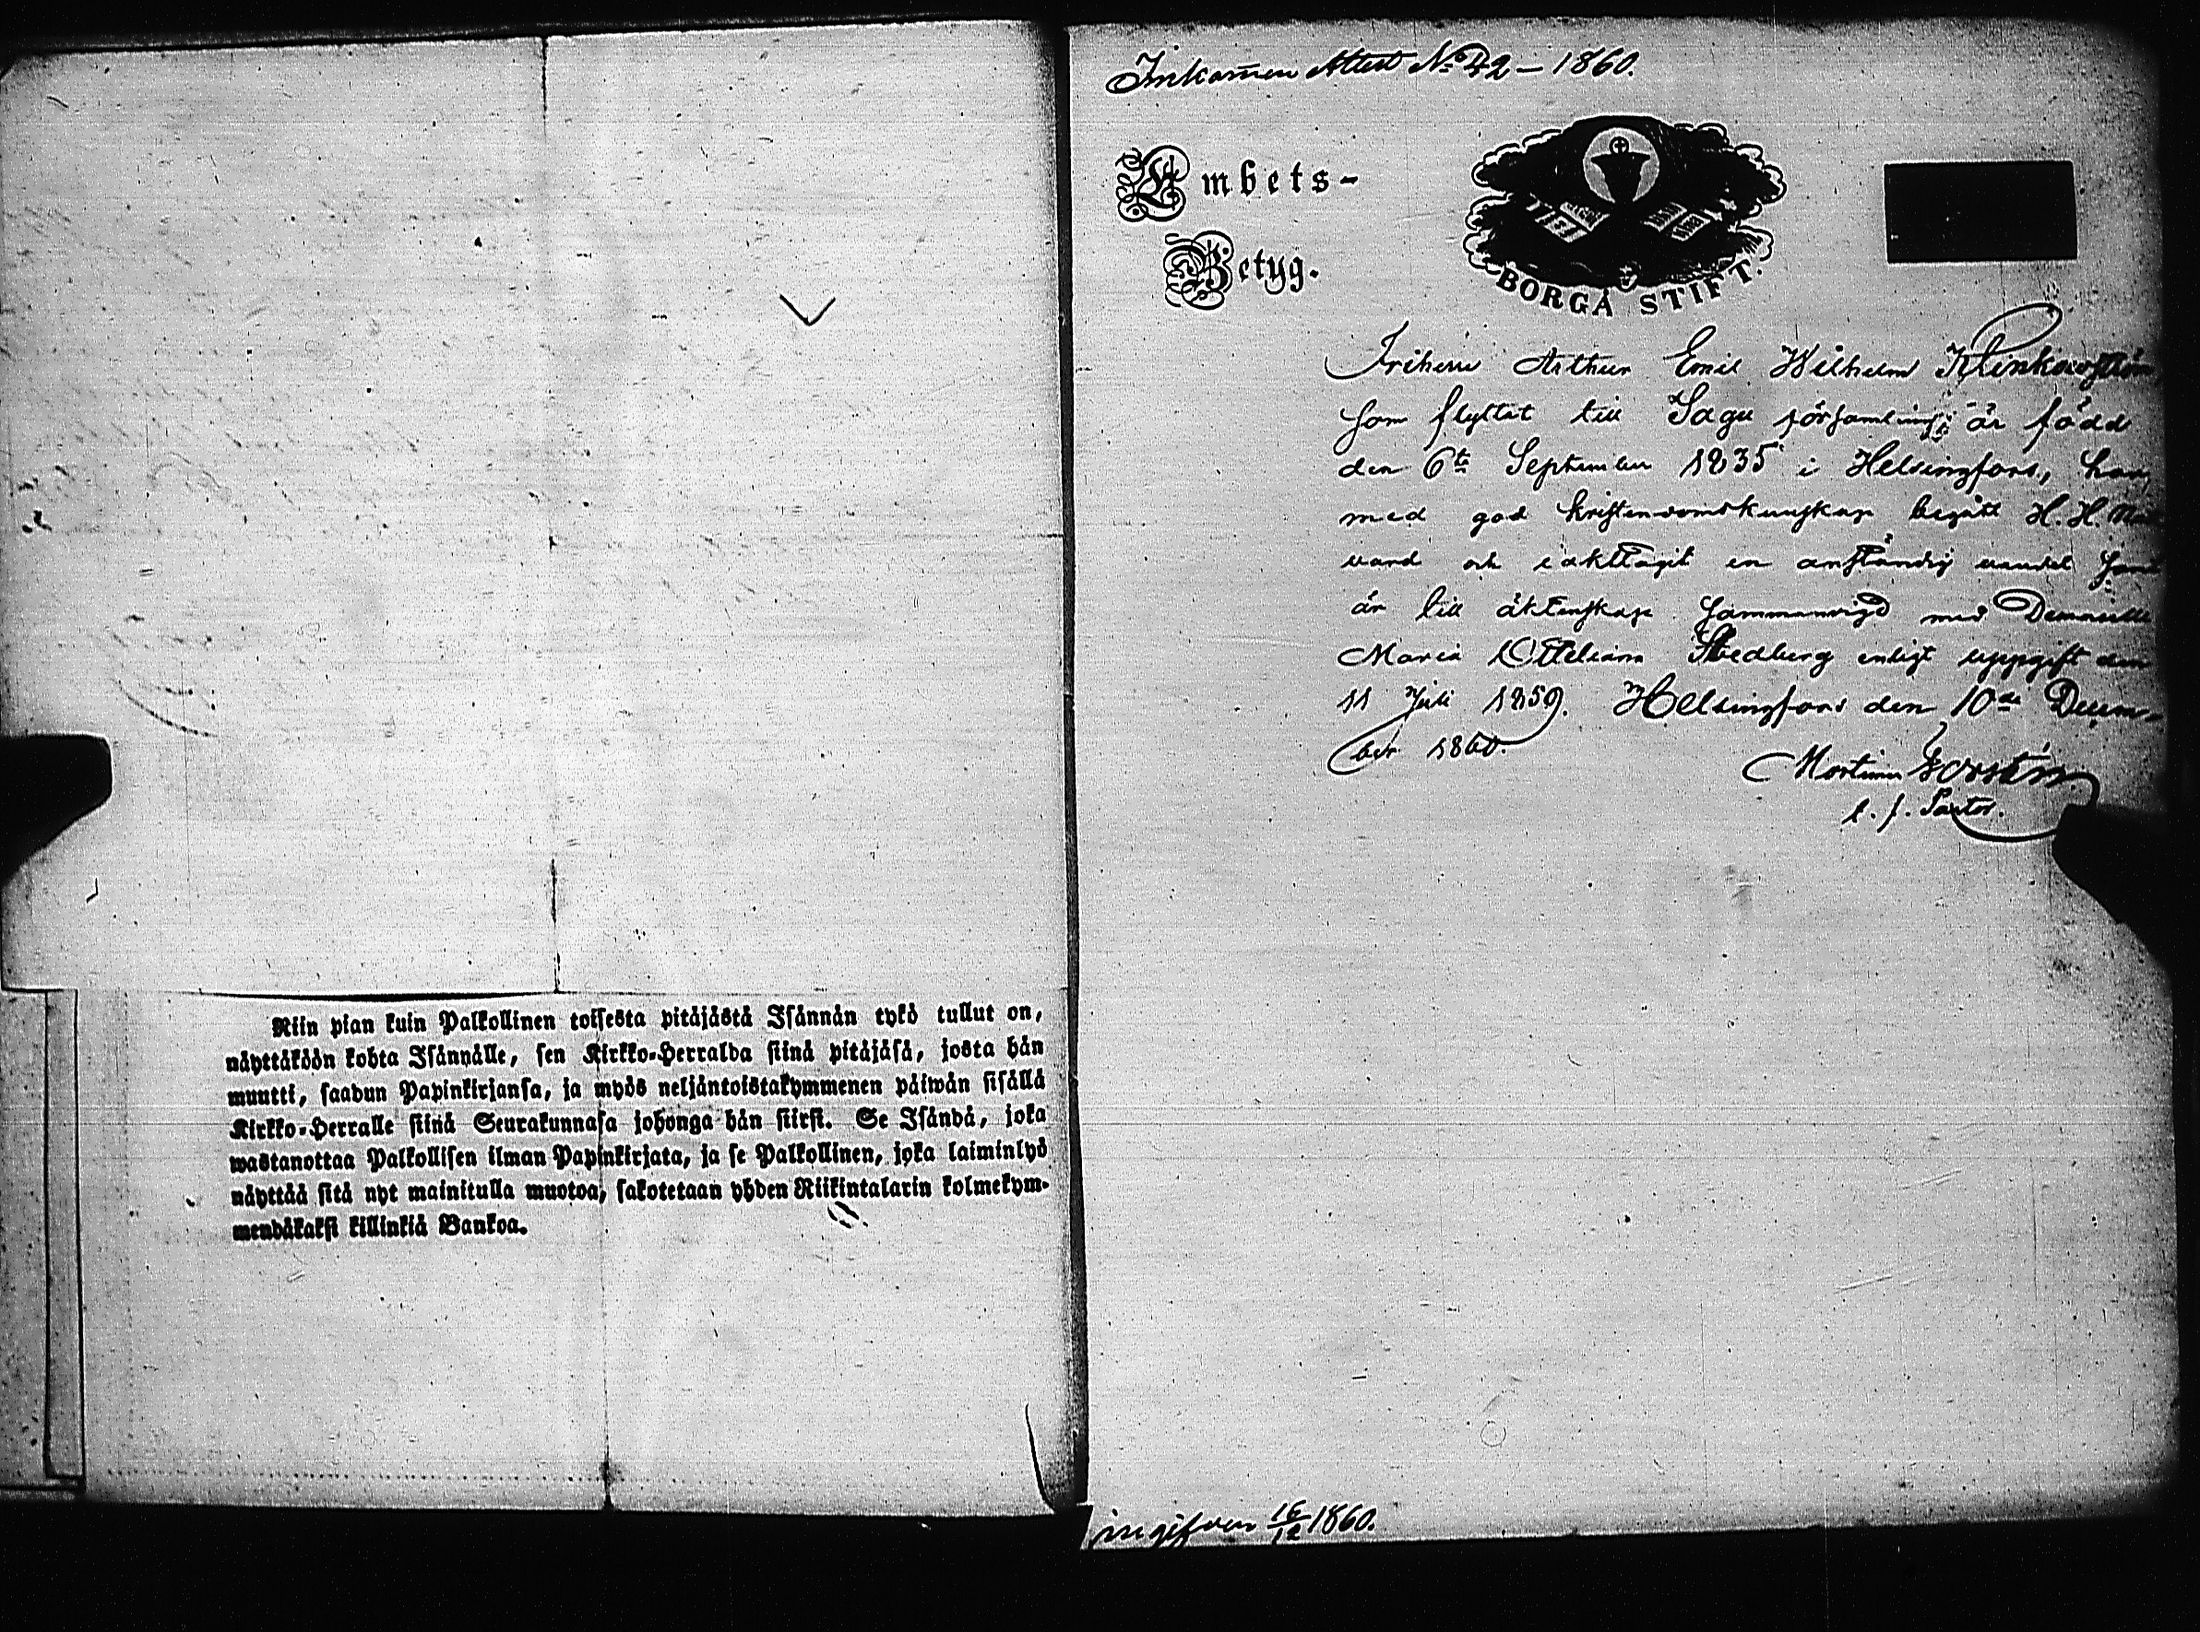 Niin pian kuin Palkollinen toisesta pitäjästä Isännän tykö tullut on,
näyttäköön kohta Isännälle, sen Kirkko-Herralda siinä pitäjäsä, josta hän
muutti, saadun Papinkirjansa, ja myös neljäntoistakymmenen päiwän sisällä
Kirkko-Herralle siinä Seurakunnasa johonga hän siirsi. Se Isändä, joka
wastanottaa Palkollisen ilman Papinkirjata, ja se Palkollinen, joka laiminlyö
näyttää sitä nyt mainitulla muotoa, sakotetaan yhden Riikintalarin kolmekym-
mendäkaksi killinkiä Bankoa.
Inkommen Attest No 42 – 1860.
Embets-
Betyg.
BORGÅ STIFT.
Friherre Arthur Emil Wilhelm Klinkowström,
som flyttat till Sagu församling, är född
den 6te September 1835 i Helsingfors, har,
med god kristendomskunskap begått H. H. Natt
vard och iakttagit en anständig vandel samt
är till äktenskap sammanvigd med Demoiselle
Maria Ottiliana Stedberg enligt uppgift den
11 Juli 1859. Helsingfors den 10de Decem-
ber 1860.
Mortimer Forstén
l. f. Pastor.
ingifven 16/12 1860.